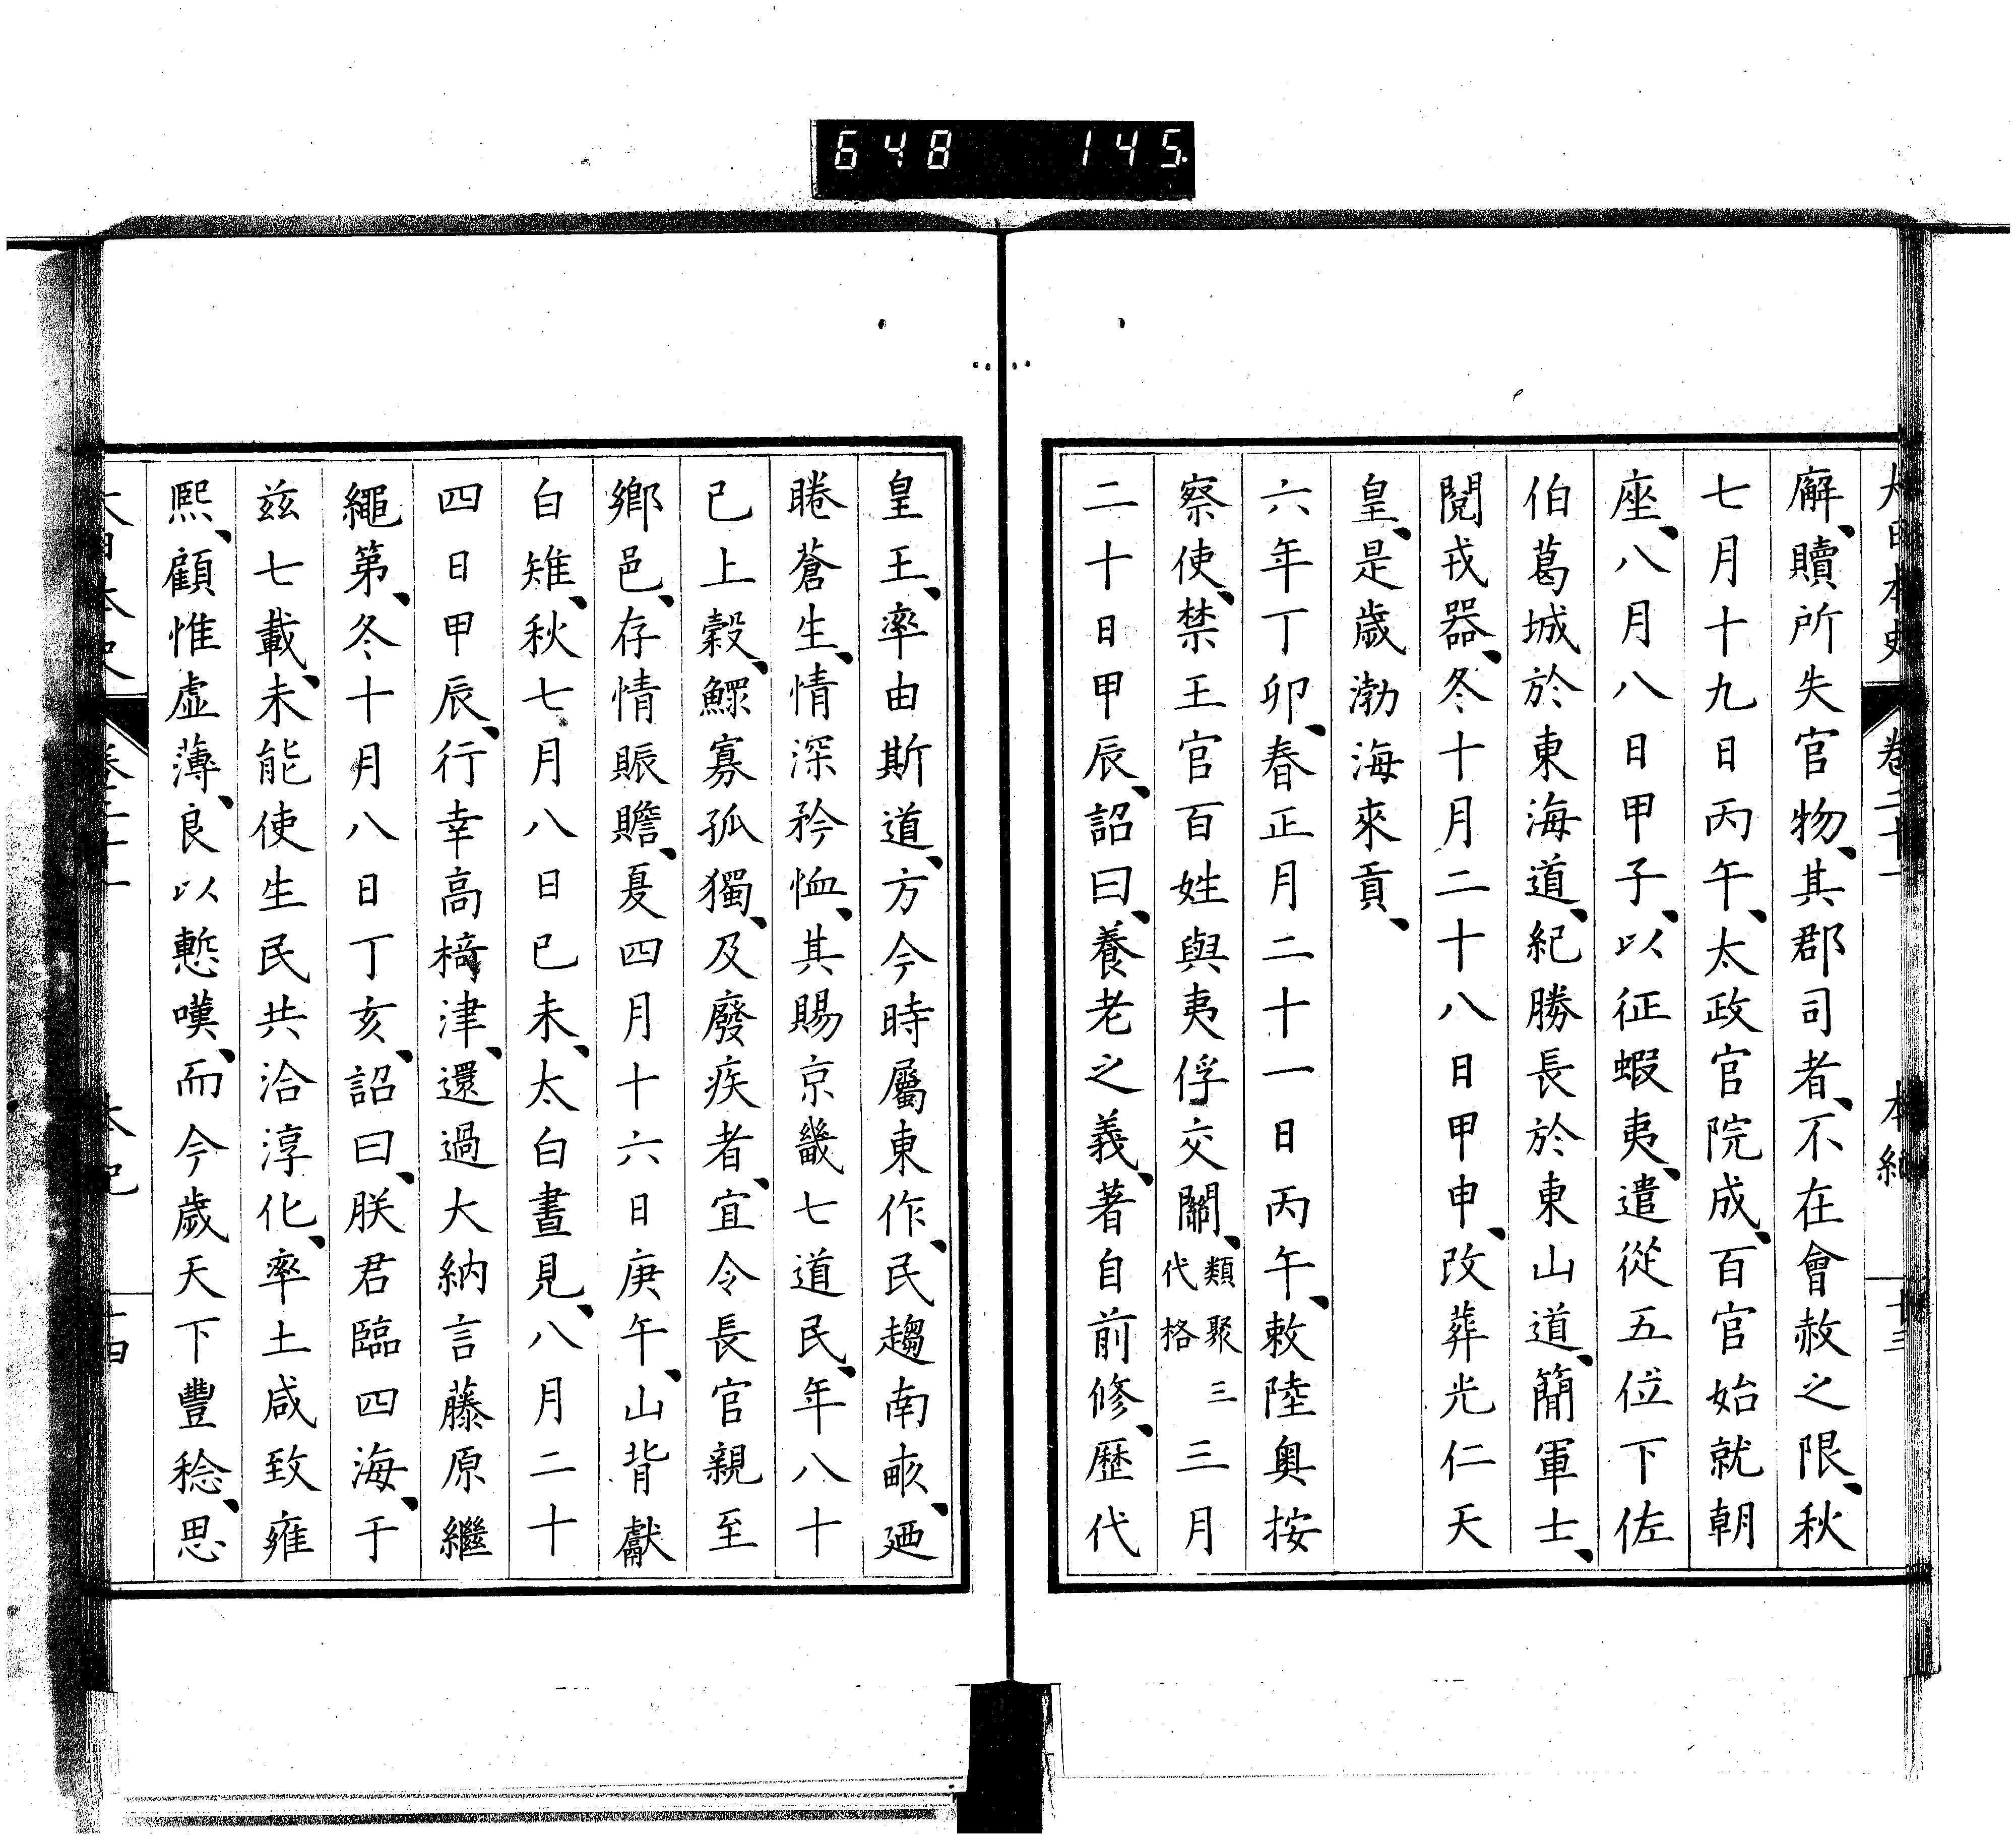 648 145
大日本史 卷二十一 本紀 十三
廨、贖所失官物、其郡司者、不在會赦之限、秋
七月十九日丙午、太政官院成、百官始就朝
座、八月八日甲子、以征蝦夷、遣從五位下佐
伯葛城於東海道、紀勝長於東山道、簡軍士、
閱戎器、冬十月二十八日甲申、改葬光仁天
皇、是歲渤海來貢、
六年丁卯、春正月二十一日丙午、敕陸奥按
察使、禁王官百姓與夷俘交關、類聚三代格 三月
二十日甲辰、詔曰、養老之義、著自前修、歷代
皇王、率由斯道、方今時屬東作、民趨南畝、廼
睠蒼生、情深矜恤、其賜京畿七道民、年八十
已上穀、鰥寡孤獨、及廢疾者、宜令長官親至
鄉邑、存情賑贍、夏四月十六日庚午、山背獻
白雉、秋七月八日已未、太白晝見、八月二十
四日甲辰、行幸高椅津、還過大納言藤原繼
繩第、冬十月八日丁亥、詔曰、朕君臨四海、于
兹七載、未能使生民共洽淳化、率土咸致雍
熙、顧惟虚薄、良以慙嘆、而今歲天下豐稔、思
大日本史 卷二十一 本紀 十四